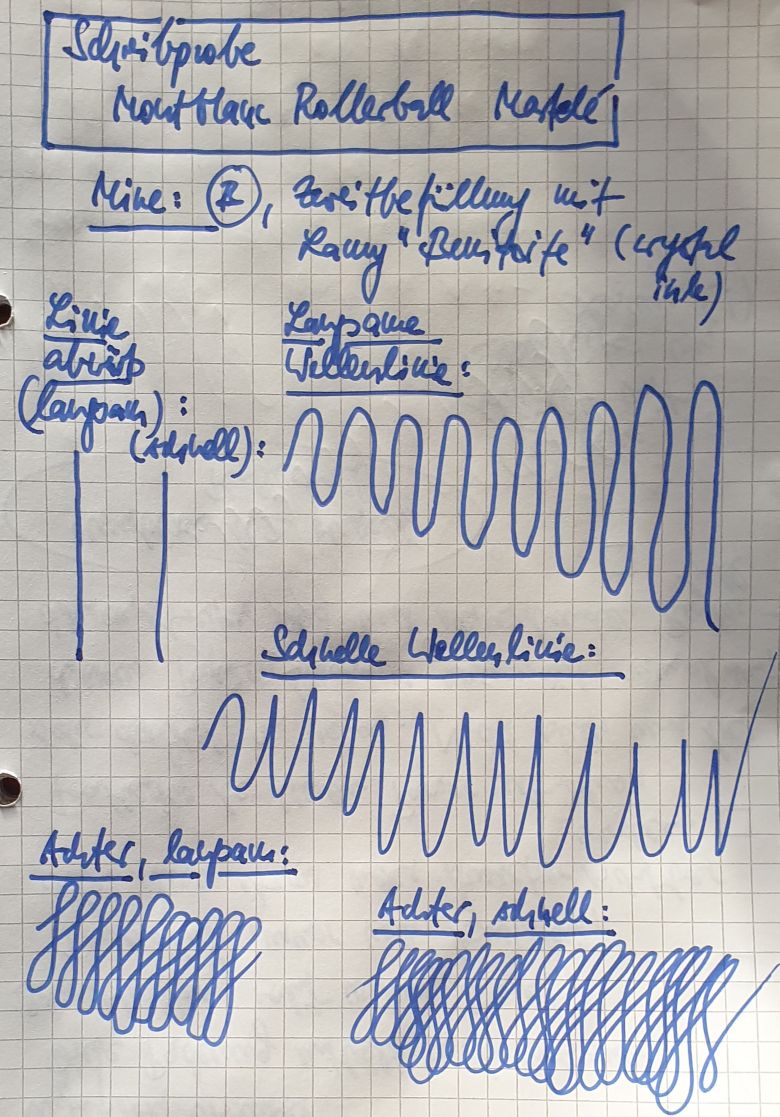 Schreibprobe
Montblanc Rollerball Martelé
Mine: R, Zweitbefüllung mit
Lamy "Benitoite" (crystal
ink)
Linie
abwärts
(langsam):
(schnell):
Langsame
Wellenlinie:
Schnelle Wellenlinie:
Achter, langsam:
Achter, schnell: